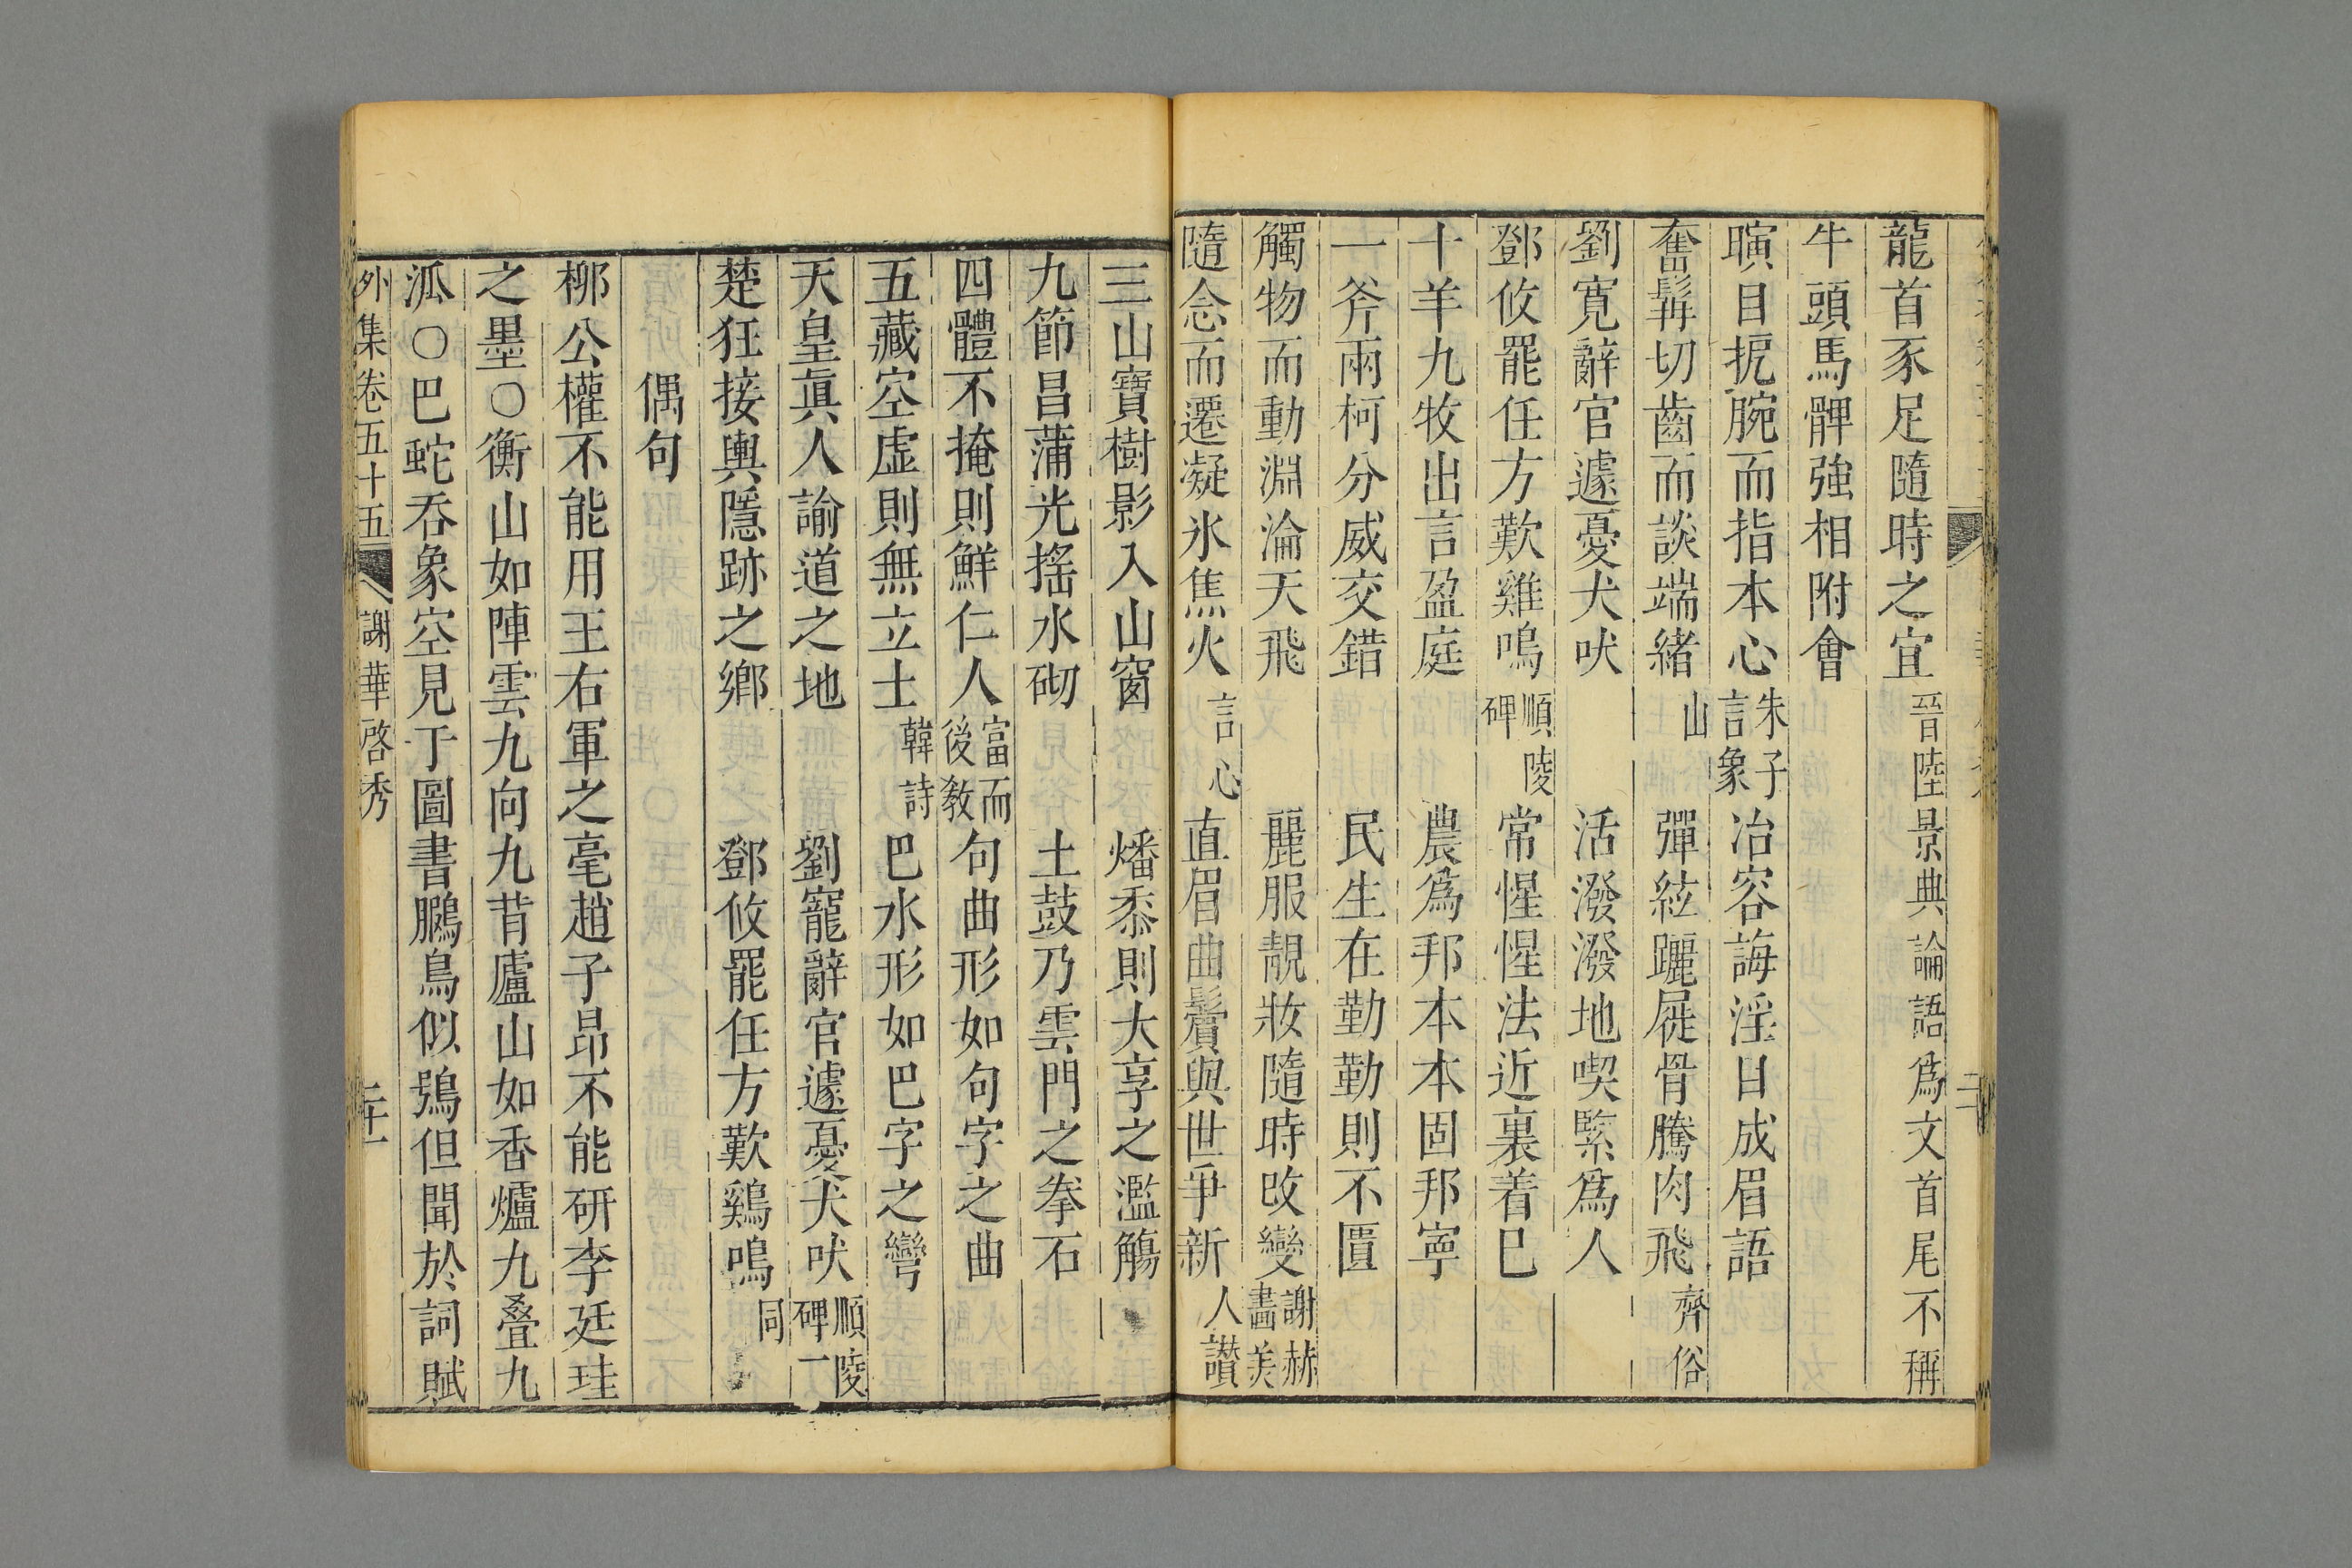 龍首豕足隨時之宜 晉陸景典論語爲文首尾不稱
牛頭馬髀強相附會
瞋目扼腕而指本心 朱子言象 冶容誨淫目成眉語
奮髯切齒而談端緖 山 彈絃躧屣骨騰肉飛 齊俗
劉寬辭官遽憂犬吠 活潑潑地喫緊爲人
鄧攸罷任方歎雞鳴 順陵碑 常惺惺法近裏着巳
十羊九牧出言盈庭 農爲邦本本固邦寧
一斧兩柯分威交錯 民生在勤勤則不匱
觸物而動淵淪天飛 麗服靚妝隨時改變 謝赫畵美
隨念而遷凝氷焦火 言心 直眉曲鬢與世爭新 人讚
三山寶樹影入山窗 燔黍則大享之濫觴
九節昌蒲光搖水砌 土鼓乃雲門之拳石
四體不掩則鮮仁人 富而後敎 句曲形如句字之曲
五藏空虛則無立士 韓詩 巴水形如巴字之彎
天皇眞人諭道之地 劉寵辭官遽憂犬吠 順陵碑一
楚狂接輿隱跡之鄉 鄧攸罷任方歎鷄鳴 同
偶句
柳公權不能用王右軍之毫趙子昂不能研李廷珪
之墨○衡山如陣雲九向九背廬山如香爐九叠九
泒○巴蛇吞象空見于圖書鵬鳥似鴞但聞於詞賦
外集卷五十五 謝華啓秀 二十一